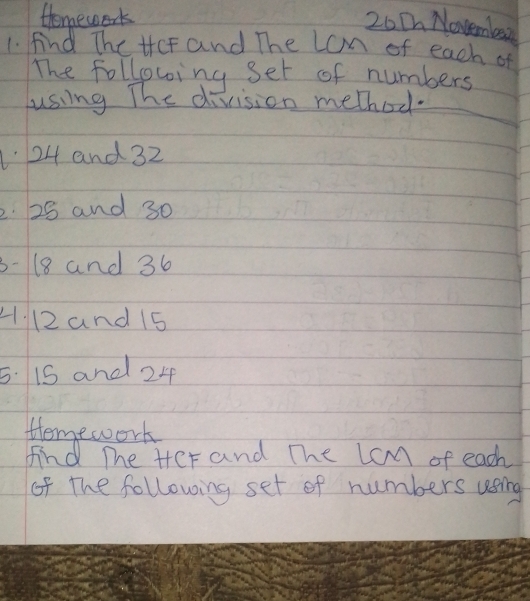 Homework 26th November
1. Find The HCF and The LCM of each of
The following set of numbers
using The division method.
1. 24 and 32
2. 25 and 30
3- 18 and 36
4. 12 and 15
5. 15 and 24
Homework
Find The HCF and The LCM of each
of the following set of numbers using